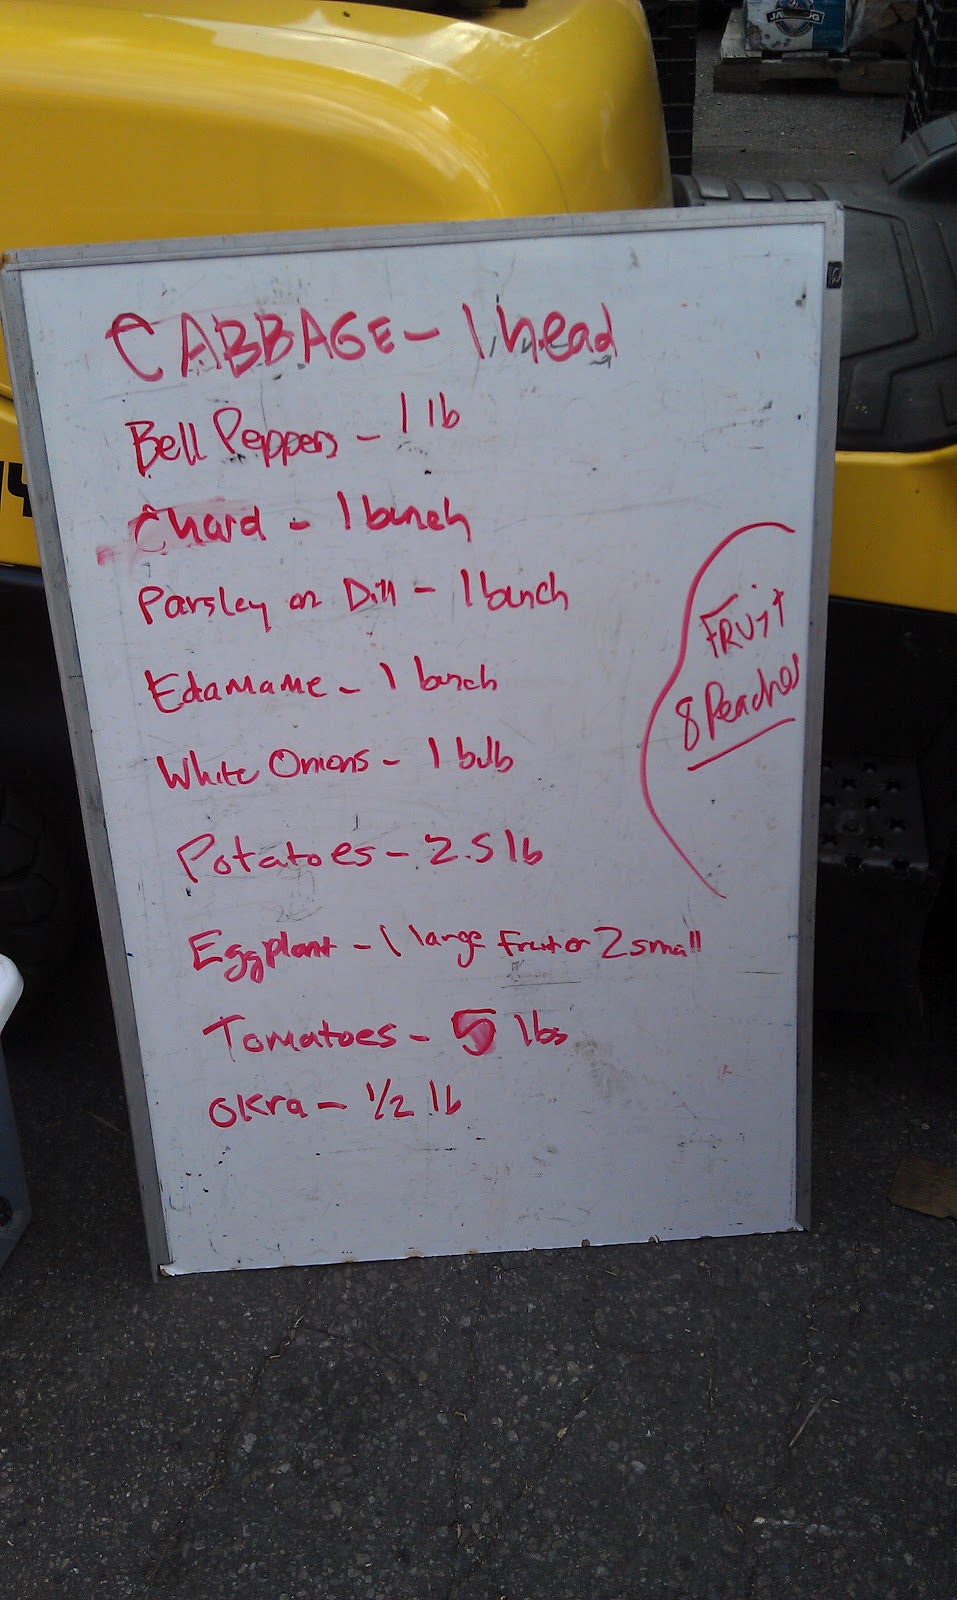 CABBAGE - 1 head
Bell Peppers - 1 lb
Chard - 1 bunch
Parsley or Dill - 1 bunch
Edamame - 1 bunch
White Onions - 1 bulb
Potatoes - 2.5 lb
Eggplant - 1 large fruit or 2 small
Tomatoes - 5 lbs
Okra - 1/2 lb
FRUIT
8 Peaches